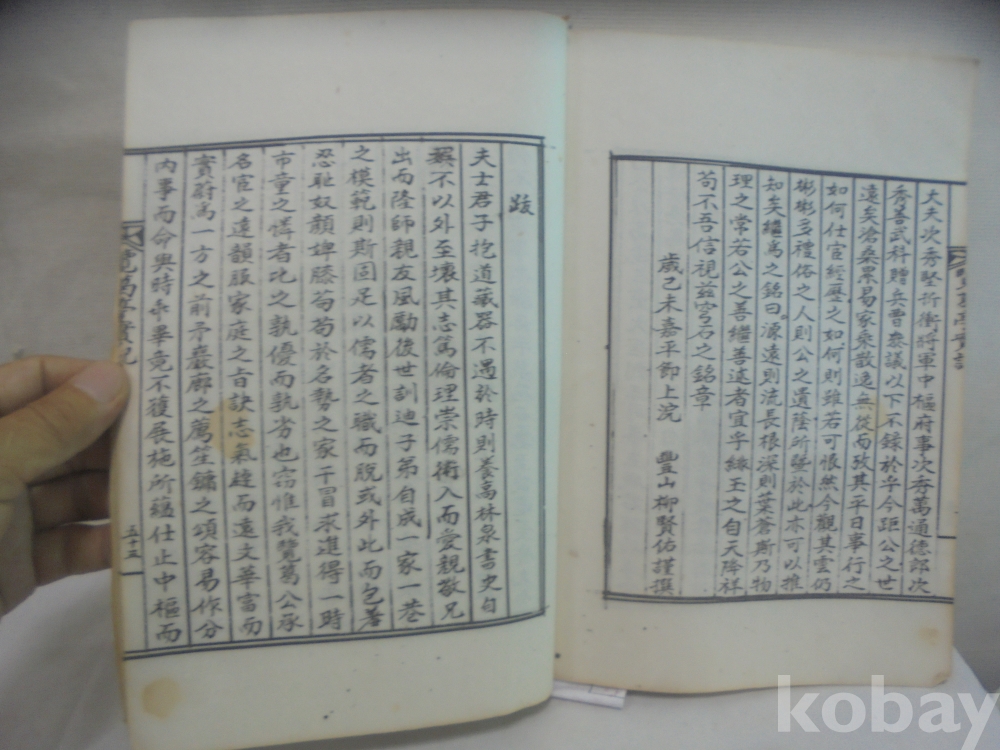 大夫次秀堅折衝將軍中樞府事次秀萬通德郎次
秀善武科贈兵曹參議以下不錄於乎今距公之世
遠矣滄桑累易家乘散逸無從而攷其平日事行之
如何仕宦經歷之如何則雖若可恨然今觀其雲仍
彬彬多禮俗之人則公之遺蔭所曁於此亦可以推
知矣繼爲之銘曰源遠則流長根深則葉蒼斯乃物
理之常若公之善繼善述者宜乎緜玉之自天降祥
苟不吾信視玆宮石之銘章
歲己未嘉平節上浣 豊山柳賢佑謹撰
跋
夫士君子抱道藏器不遇於時則養高林泉書史自
娛不以外至壞其志篤倫理崇儒術入而愛親敬兄
出而隆師親友風勵後世訓迪子弟自成一家一巷
之模範則斯固足以儒者之職而脫或外此而包羞
忍耻奴顔婢膝苟苟於名勢之家干冒求進得一時
市童之憐者比之孰優而孰劣也窃惟我覽葛公承
名宦之遺韻服家庭之旨訣志氣達而遠文華富而
實蔚爲一方之前矛巖廊之薦笙鏞之頌容易作分
內事而命與時乖畢竟不獲展施所蘊仕止中樞而
覽葛亭實記
五十五
kobay